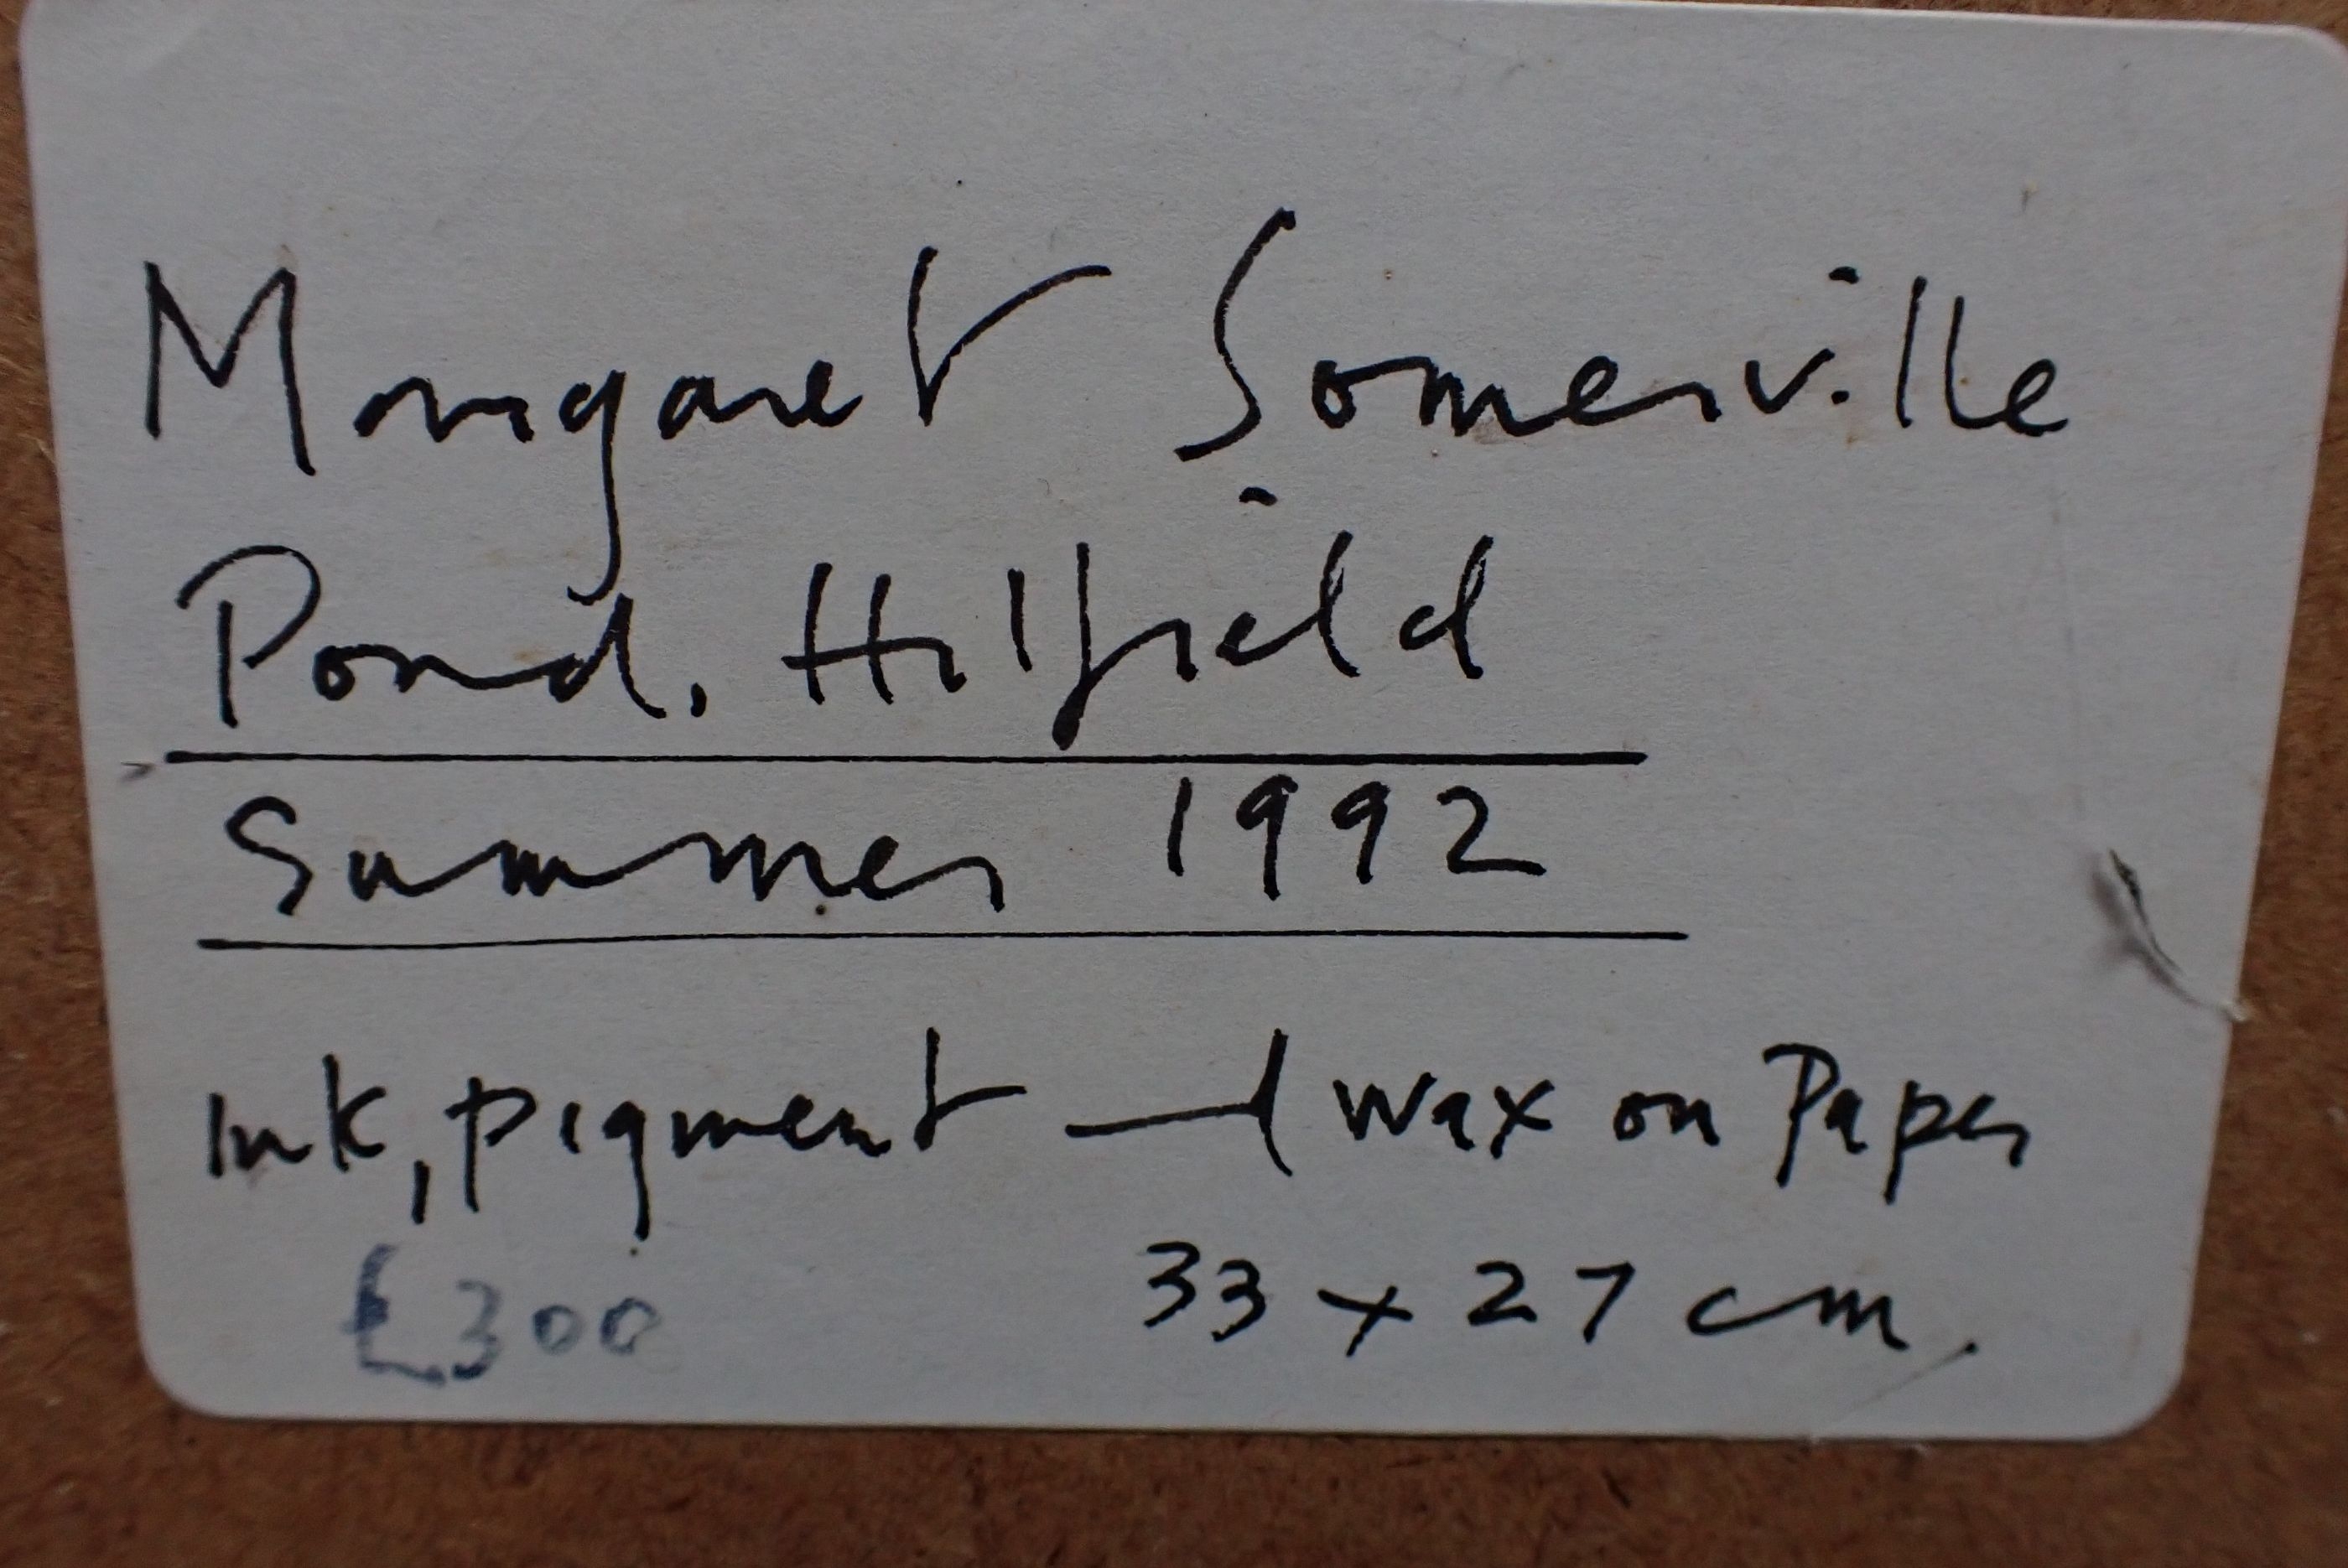 Margaret Somerville
Pond, Hilfield
Summer 1992
Ink, pigment and wax on Paper
£300 33 x 27 cm.